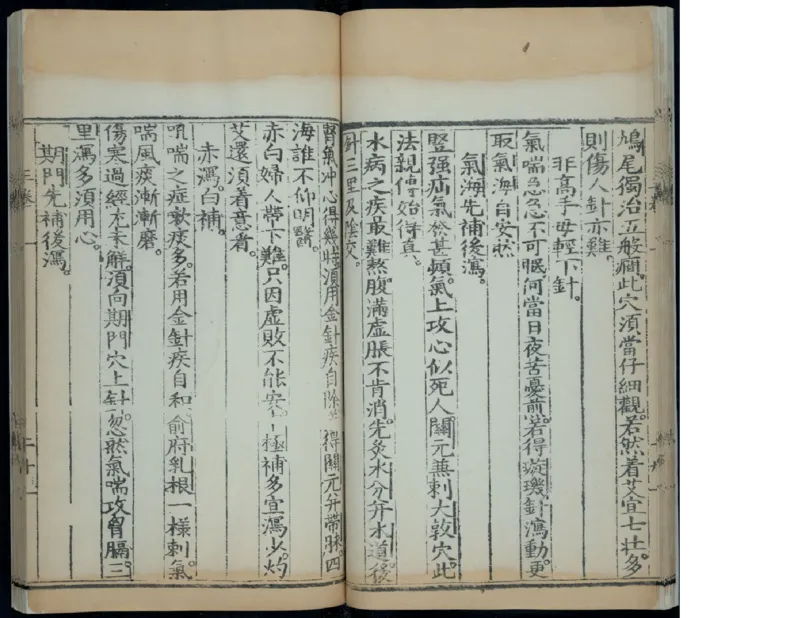 鳩尾獨治五般癎此穴須當仔細觀若然着艾宜七壯多
則傷人針亦難
非高手毋輕下針
氣喘急急不可眠何當日夜苦憂煎若得璇璣針瀉動更
取氣海自安然
氣海先補後瀉
腎强疝氣發甚頻氣上攻心似死人關元兼刺大敦穴此
法親傳始得真
水病之疾最難熬腹滿虛脹不肯消先灸水分并水道後
針三里及陰交
腎氣冲心得幾時須用金針疾自除得關元并帶脉四
海誰不仰明醫
赤白婦人帶下難只因虛敗不能安極補多宜瀉少灼
艾還須着意看
赤瀉白補
吼喘之症嗽痰多若用金針疾自和俞府乳根一樣刺氣
喘風痰漸漸磨
傷寒過經尤未解須向期門穴上針忽然氣喘攻胷膈三
里瀉多須用心
期門先補後瀉